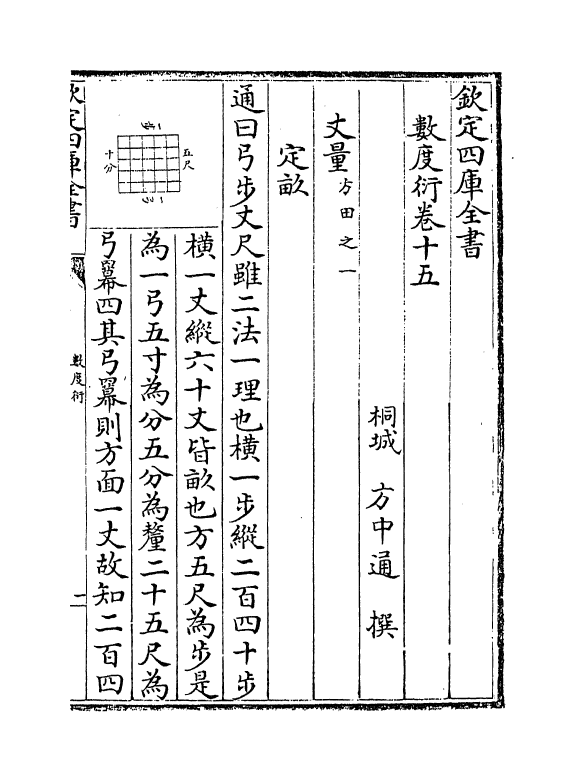 欽定四庫全書
數度衍卷十五
桐城 方中通 撰
丈量方田之一
定畝
通曰弓步丈尺雖二法一理也橫一步縱二百四十步
橫一丈縱六十丈皆畝也方五尺為步是
為一弓五寸為分五分為釐二十五尺為
弓冪四其弓冪則方面一丈故知二百四
五尺
十分
欽定四庫全書
數度衍